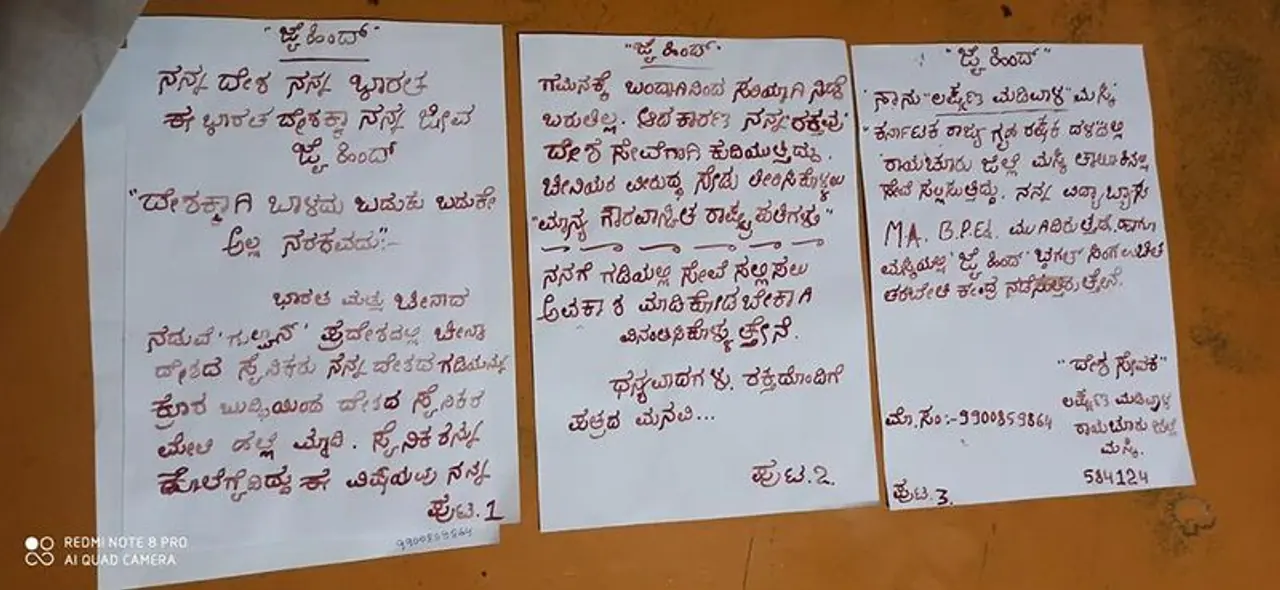 "ಜೈ ಹಿಂದ್"
ನನ್ನ ದೇಶ ನನ್ನ ಭಾರತ
ಈ ಭಾರತ ದೇಶಕ್ಕಾ ನನ್ನ ಜೀವ
ಜೈ ಹಿಂದ್
"ದೇಶಕ್ಕಾಗಿ ಬಾಳದು ಬದುಕು ಬದುಕೇ
ಅಲ್ಲ ನರಕವದು":-
ಭಾರತ ಮತ್ತು ಚೀನಾದ
ನಡುವೆ 'ಗುಲ್ವಾನ್' ಪ್ರದೇಶದಲ್ಲಿ ಚೀನಾ
ದೇಶದ ಸೈನಿಕರು ನನ್ನ ದೇಶದ ಗಡಿಯನ್ನು
ಕ್ರೂರ ಬುದ್ಧಿಯಿಂದ ದೇಶದ ಸೈನಿಕರ
ಮೇಲೆ ಹಲ್ಲೆ ಮಾಡಿ. ಸೈನಿಕರನ್ನು
ಈ ವಿಷಯವು ನನ್ನ
ಪುಟ. 1
9900859864
"ಜೈ ಹಿಂದ್"
ಗಮನಕ್ಕೆ ಬಂದಾಗಿನಿಂದ ಸರಿಯಾಗಿ ನಿದ್ದೆ
ಬರುತಿಲ್ಲ. ಆದ ಕಾರಣ ನನ್ನ "ರಕ್ತವು
ದೇಶ ಸೇವೆಗಾಗಿ ಕುದಿಯುತ್ತಿದ್ದು.
ಚೀನಿಯರ ವಿರುದ್ಧ ಸೇಡು ತೀರಿಸಿಕೊಳ್ಳಲು
"ಮಾನ್ಯ ಗೌರವಾನ್ವಿತ ರಾಷ್ಟ್ರಪತಿಗಳು"
ನನಗೆ ಗಡಿಯಲ್ಲಿ ಸೇವೆ ಸಲ್ಲಿಸಲು
ಅವಕಾಶ ಮಾಡಿಕೋಡಬೇಕಾಗಿ
ವಿನಂತಿಸಿಕೊಳ್ಳುತ್ತೇನೆ.
ಧನ್ಯವಾದಗಳು. ರಕ್ತದೊಂದಿಗೆ
ಪತ್ರದ ಮನವಿ...
ಪುಟ. 2.
"ಜೈ ಹಿಂದ್"
'ನಾನು "ಲಕ್ಷ್ಮಣ ಮಡಿವಾಳ" ಮಸ್ಕಿ
"ಕರ್ನಾಟಕ ರಾಜ್ಯ ಗೃಹ ರಕ್ಷಕ ದಳದಲ್ಲಿ
ರಾಯಚೂರು ಜಿಲ್ಲೆ ಮಸ್ಕಿ ತಾಲೂಕಿನಲ್ಲಿ
ಸೇವೆ ಸಲ್ಲಿಸುತ್ತಿದ್ದು. ನನ್ನ ವಿದ್ಯಾಬ್ಯಾಸ
MA. B.P.Ed. ಮುಗಿದಿರುತ್ತದೆ. ಹಾಗೂ
ಮಸ್ಕಿಯಲ್ಲಿ 'ಜೈ ಹಿಂದ್' ಭಗತ್ ಸಿಂಗ ಉಚಿತ
ತರಬೇತಿ ಕೇಂದ್ರ ನಡೆಸುತ್ತಿರುತ್ತೇನೆ.
"ದೇಶ ಸೇವಕ"
ಲಕ್ಷ್ಮಣ ಮಡಿವಾಳ
ಮೊ.ಸಂ:-9900859864
ರಾಯಚೂರು ಜಿಲ್ಲೆ
ಮಸ್ಕಿ.
584124
ಪುಟ. 3.
REDMI NOTE 8 PRO
AI QUAD CAMERA